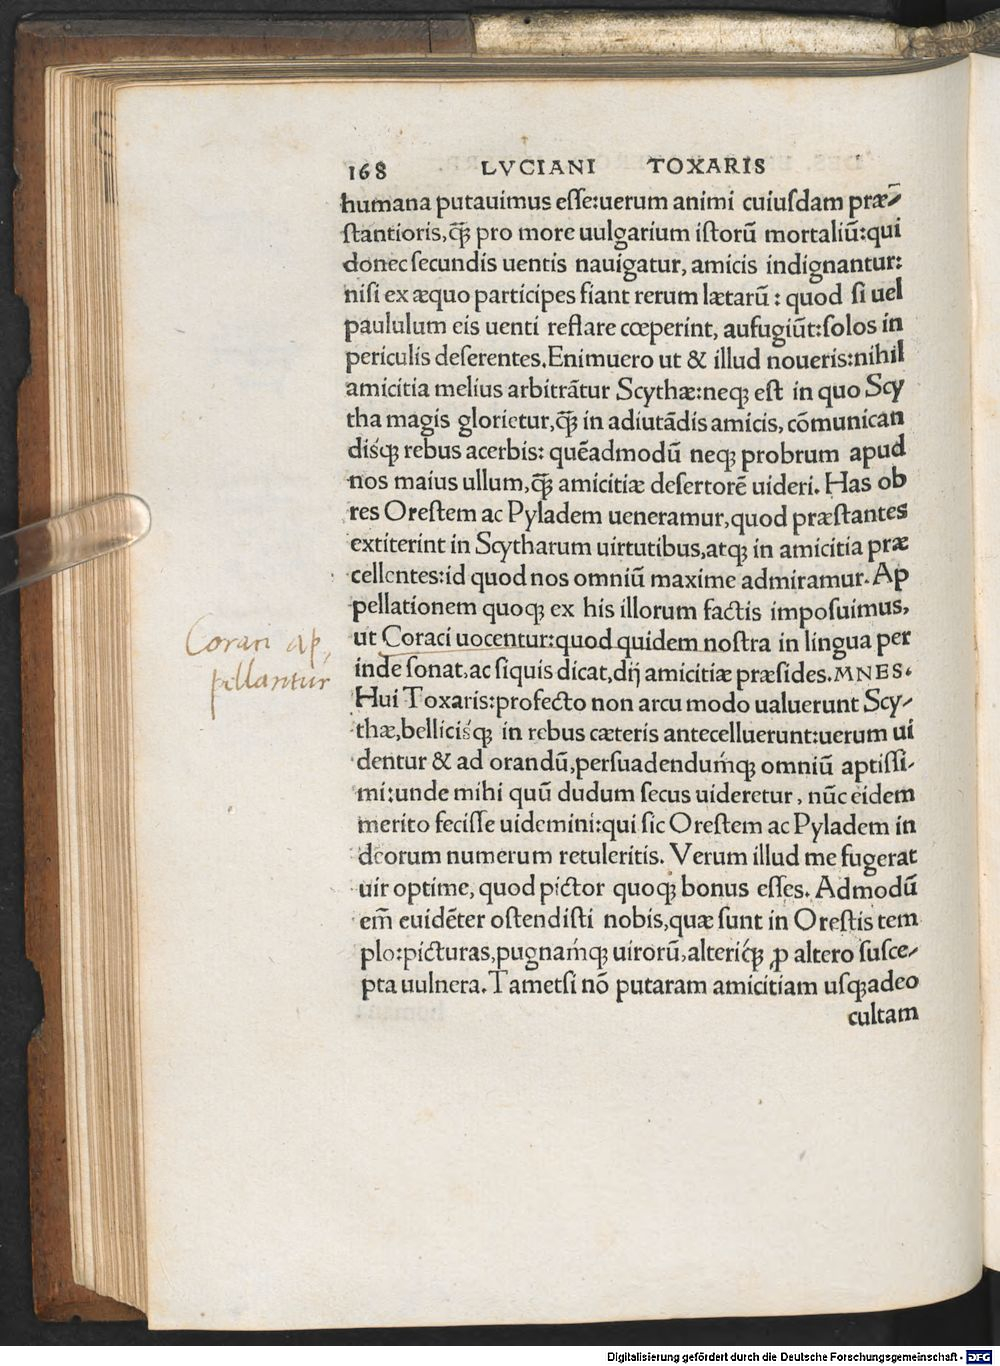 168 LVCIANI TOXARIS
humana putauimus eſſe:uerum animi cuiuſdam præ-
ſtantioris,q̃ꝫ pro more uulgarium iſtorũ mortaliũ:qui
donec ſecundis uentis nauigatur, amicis indignantur:
niſi ex æquo participes fiant rerum lætarũ : quod ſi uel
paululum eis uenti reflare cœperint, aufugiũt:ſolos in
periculis deſerentes.Enimuero ut & illud noueris:nihil
amicitia melius arbitrãtur Scythæ:neqꝫ eſt in quo Scy
tha magis glorietur,q̃ꝫ in adiutãdis amicis, cõmunican
diśqꝫ rebus acerbis: quẽadmodũ neqꝫ probrum apud
nos maius ullum,q̃ꝫ amicitiæ deſertorẽ uideri. Has ob
res Oreſtem ac Pyladem ueneramur,quod præſtantes
extiterint in Scytharum uirtutibus,atqꝫ in amicitia præ
cellentes:id quod nos omniũ maxime admiramur. Ap
pellationem quoqꝫ ex his illorum factis impoſuimus,
ut Coraci uocentur:quod quidem noſtra in lingua per
inde ſonat,ac ſiquis dicat,dij amicitiæ præſides.MNES.
Hui Toxaris:profecto non arcu modo ualuerunt Scy-
thæ,belliciśqꝫ in rebus cæteris antecelluerunt:uerum ui
dentur & ad orandũ,perſuadendumq́ꝫ omniũ aptiſſi-
mi:unde mihi quũ dudum ſecus uideretur, nũc eidem
merito feciſſe uidemini:qui ſic Oreſtem ac Pyladem in
deorum numerum retuleritis. Verum illud me fugerat
uir optime, quod pictor quoqꝫ bonus eſſes. Admodũ
em̃ euidẽter oſtendiſti nobis,quæ ſunt in Oreſtis tem
plo:picturas,pugnamq́ꝫ uirorũ,altericq́ꝫ ꝓ altero ſuſce-
pta uulnera.Tametſi nõ putaram amicitiam uſqꝫadeo
cultam
Coraci ap,
pellantur
Digitalisierung gefördert durch die Deutsche Forschungsgemeinschaft - DFG